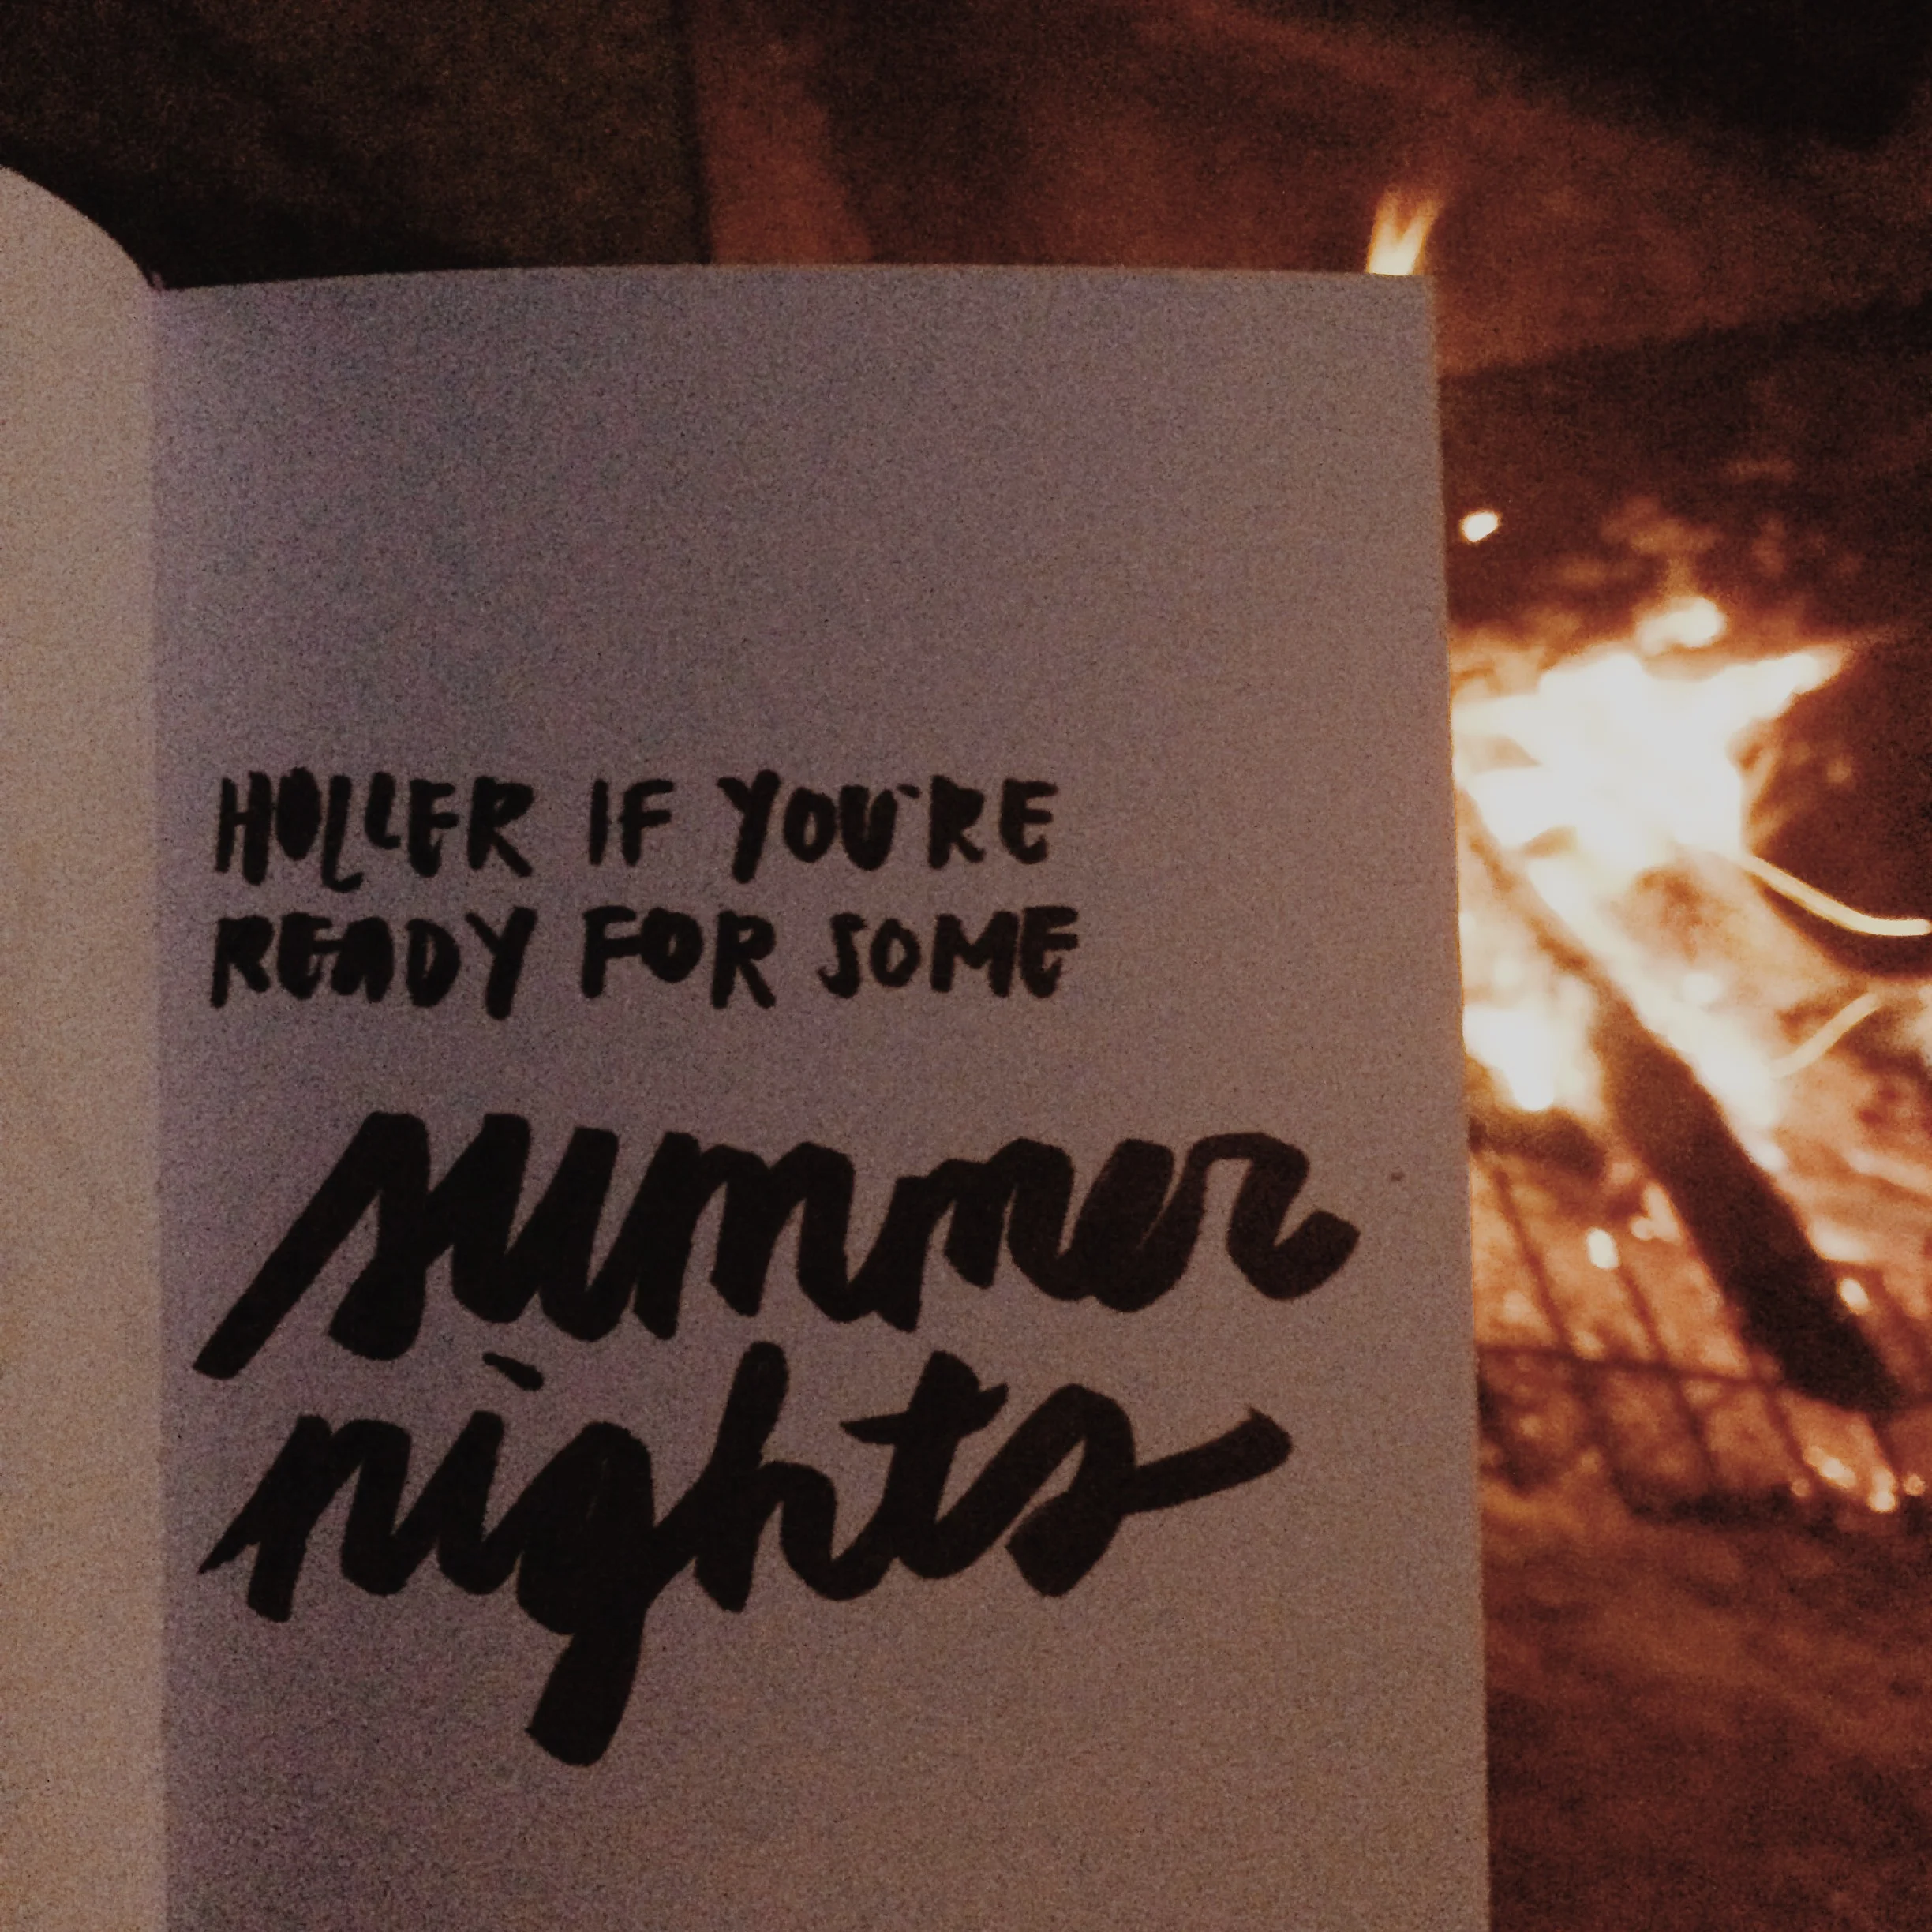 HOLLER IF YOU'RE
READY FOR SOME
summer
nights